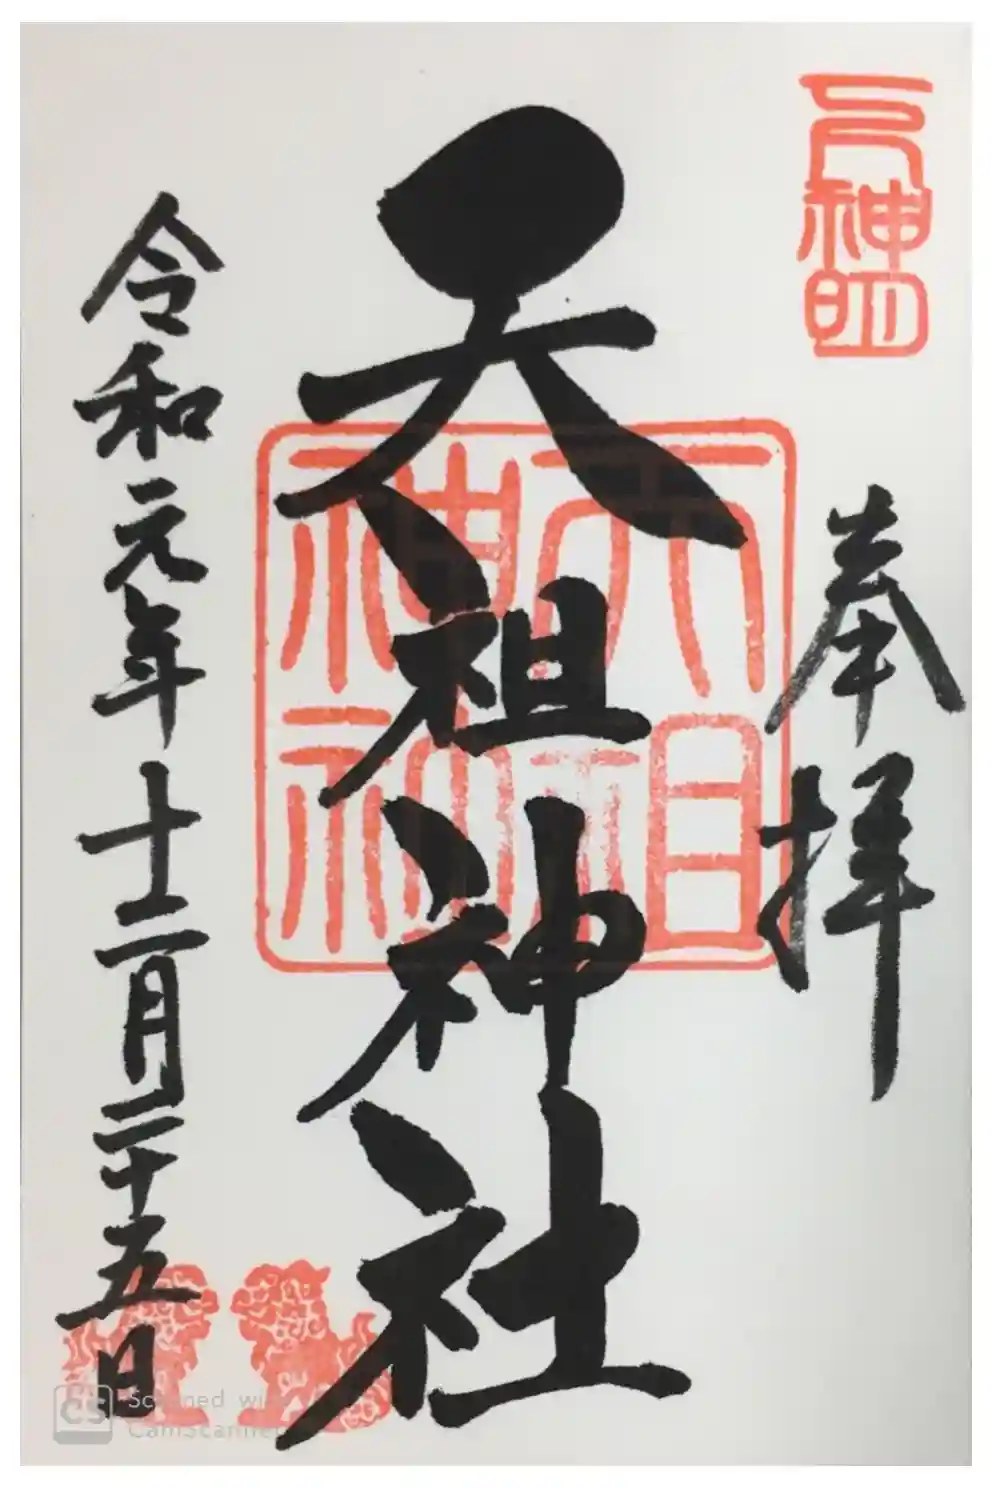 神明
奉拝
天祖神社
天祖神社
令和元年十二月二十五日
CS
Scanned with
CamScanner